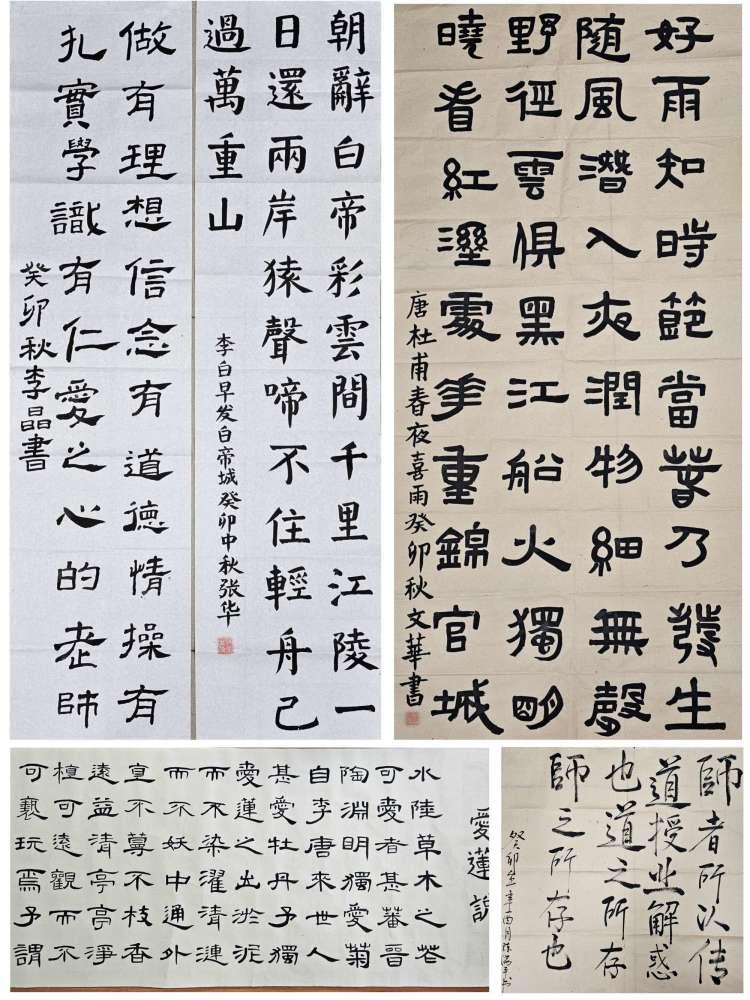 做有理想信念有道德情操有
扎實學識有仁愛之心的老師
癸卯秋李晶書
朝辭白帝彩雲間千里江陵一
日還兩岸猿聲啼不住輕舟已
過萬重山
李白早发白帝城癸卯中秋张华
好雨知時節當春乃發生
随風潛入夜潤物細無聲
野徑雲俱黑江船火獨明
曉看紅溼處花重錦官城
唐杜甫春夜喜雨癸卯秋文華書
愛蓮說
水陸草木之花
可愛者甚蕃晉
陶淵明獨愛菊
自李唐來世人
甚愛牡丹予獨
愛蓮之出淤泥
而不染濯清漣
而不妖中通外
直不蔓不枝香
遠益清亭亭淨
植可遠觀而不
可褻玩焉予謂
師者所以传
道授业解惑
也道之所存
師之所存也
癸卯年辛酉月